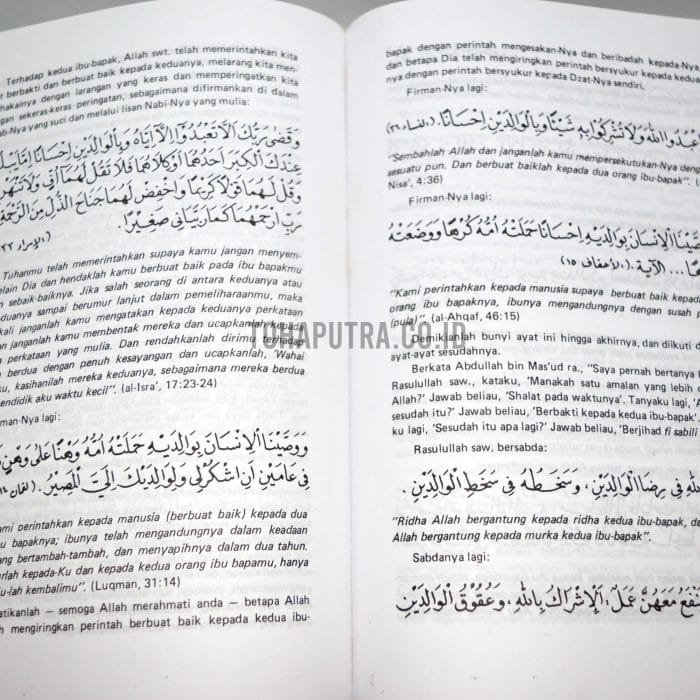 Terhadap kedua ibu-bapak, Allah swt. telah memerintahkan kita
berbakti dan berbuat baik kepada keduanya, melarang kita men-
hakainya dengan larangan yang keras dan memperingatkan kita
gan sekeras-keras peringatan, sebagaimana difirmankan di dalam
b-Nya yang suci dan melalui lisan Nabi-Nya yang mulia:
وَقَضَى رَبُّكَ أَلَّا تَعْبُدُوا إِلَّا إِيَّاهُ وَبِالْوَالِدَيْنِ إِحْسَانًا إِمَّا يَبْلُغَ
عِنْدَكَ الْكِبَرَ أَحَدُهُمَا أَوْ كِلَاهُمَا فَلَا تَقُلْ لَهُمَا أُفٍّ وَلَا تَنْهَرْ
وَقُلْ لَهُمَا قَوْلًا كَرِيمًا وَاخْفِضْ لَهُمَا جَنَاحَ الذُّلِّ مِنَ الرَّحْمَةِ
رَبِّ ارْحَمْهُمَا كَمَا رَبَّيَانِي صَغِيرًا.
(الإسراء ٢٣
Tuhanmu telah memerintahkan supaya kamu jangan menyem-
elain Dia dan hendaklah kamu berbuat baik pada ibu bapakmu
n sebaik-baiknya. Jika salah seorang di antara keduanya atau
duanya sampai berumur lanjut dalam pemeliharaanmu, maka
kali janganlah kamu mengatakan kepada keduanya perkataan
n janganlah kamu membentak mereka dan ucapkanlah kepada
perkataan yang mulia. Dan rendahkanlah dirimu terhadap
berdua dengan penuh kesayangan dan ucapkanlah, 'Wahai
u, kasihanilah mereka keduanya, sebagaimana mereka berdua
endidik aku waktu kecil". (al-Isra', 17:23-24)
man-Nya lagi:
وَوَصَّيْنَا الْإِنْسَانَ بِوَالِدَيْهِ حَمَلَتْهُ أُمُّهُ وَهْنًا عَلَى وَهْنٍ
فِي عَامَيْنِ أَنِ اشْكُرْ لِي وَلِوَالِدَيْكَ إِلَيَّ الْمَصِيرُ. (لقمان
ami perintahkan kepada manusia (berbuat baik) kepada dua
u bapaknya; ibunya telah mengandungnya dalam keadaan
ng bertambah-tambah, dan menyapihnya dalam dua tahun.
rlah kepada-Ku dan kepada kedua orang ibu bapamu, hanya
u-lah kembalimu". (Luqman, 31:14)
atikanlah — semoga Allah merahmati anda — betapa Allah
h mengiringkan perintah berbuat baik kepada kedua ibu-
bapak dengan perintah mengesakan-Nya dan beribadah kepada-Nya,
dan betapa Dia telah mengiringkan perintah bersyukur kepada kedua
nya dengan perintah bersyukur kepada Dzat-Nya sendiri.
Firman-Nya lagi:
اعْبُدُوا اللهَ وَلَا تُشْرِكُوا بِهِ شَيْئًا وَبِالْوَالِدَيْنِ إِحْسَانًا. (النساء ٣٦)
"Sembahlah Allah dan janganlah kamu mempersekutukan-Nya deng
sesuatu pun. Dan berbuat baiklah kepada dua orang ibu-bapak". (
Nisa', 4:36)
Firman-Nya lagi:
يْنَا الْإِنْسَانَ بِوَالِدَيْهِ إِحْسَانًا حَمَلَتْهُ أُمُّهُ كُرْهًا وَوَضَعَتْهُ
... الآية. (الأحقاف ١٥)
"Kami perintahkan kepada manusia supaya berbuat baik kepada
orang ibu bapaknya, ibunya mengandungnya dengan susah p
(pula)". (al-Ahqaf, 46:15)
Demikianlah bunyi ayat ini hingga akhirnya, dan diikuti d
ayat-ayat sesudahnya.
Berkata Abdullah bin Mas'ud ra., "Saya pernah bertanya k
Rasulullah saw., kataku, 'Manakah satu amalan yang lebih d
Allah?' Jawab beliau, 'Shalat pada waktunya'. Tanyaku lagi, 'A
sesudah itu?' Jawab beliau, 'Berbakti kepada kedua ibu-bapak'.
ku lagi, 'Sesudah itu apa lagi?' Jawab beliau, 'Berjihad fi sabili
Rasulullah saw. bersabda:
اللهِ فِي رِضَا الْوَالِدَيْنِ، وَسَخَطُهُ فِي سَخَطِ الْوَالِدَيْنِ.
"Ridha Allah bergantung kepada ridha kedua ibu-bapak, da
Allah bergantung kepada murka kedua ibu-bapak".
Sabdanya lagi:
نْفَعُ مَعَهُنَّ عَمَلٌ: اَلْإِشْرَاكُ بِاللهِ، وَعُقُوقُ الْوَالِدَيْنِ
TOHAPUTRA.CO.ID